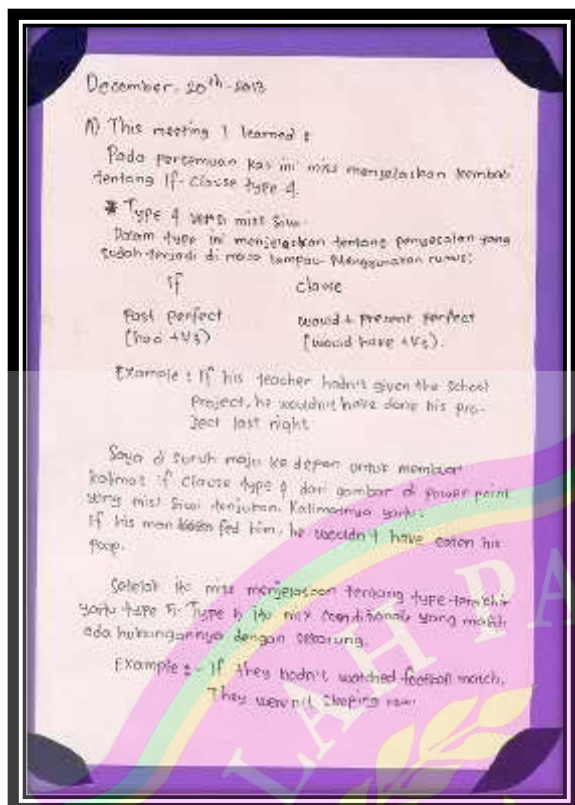 December, 20th-2013
A) This meeting I learned :
Pada pertemuan kali ini miss menjelaskan kembali
tentang If-Clause type 4.
* Type 4 versi miss Siwi
Dalam type ini menjelaskan tentang penyesalan yang
sudah terjadi di masa lampau. Menggunakan rumus:
If clause
Past Perfect would + Present Perfect
(had + V3) (would have + V3).
Example : If his teacher hadn't given the School
Project, he wouldn't have done his pro-
ject last night
Saya di suruh maju ke depan untuk membuat
kalimat if clause type 4 dari gambar di power point
yang miss Siwi tunjukan. Kalimatnya yaitu:
If his man fed him, he wouldn't have eaten his
poop.
Setelah itu miss menjelaskan tentang type terakhir
yaitu type 5. Type 5 itu mix conditionals yang masih
ada hubungannya dengan sekarang.
Example : - If they hadn't watched football match,
They weren't sleeping now
LAH PA